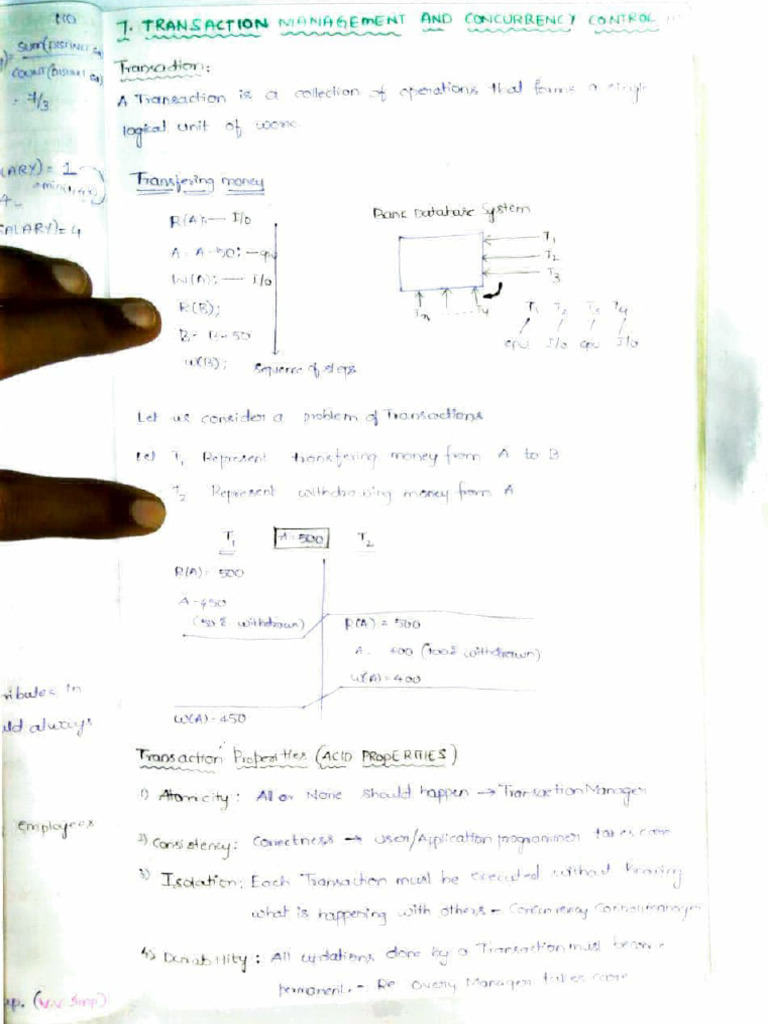 7. TRANSACTION MANAGEMENT AND CONCURRENCY CONTROL
Transaction:
A Transaction is a collection of operations that forms a single
logical unit of work
Transfering money
R(A); — I/o
A = A - 50; — cpu
W(A); — I/o
R(B);
B = B - 50
W(B);
Sequence of steps
Bank Database System
T1
T2
T3
Tn
T4
T1 T2 T3 T4
cpu I/o cpu I/o
Let us consider a problem of Transactions
Let T1 Represent transfering money from A to B
T2 Represent withdrawing money from A
T1 A=500 T2
R(A) = 500
A=450
(50 withdrawn)
R(A) = 500
A = 400 (100 withdrawn)
W(A) = 400
W(A) = 450
Transaction Properties (ACID PROPERTIES)
1) Atomicity: All or None should happen → Transaction Manager
2) Consistency: Corectness → user/Application programmer takes care
3) Isolation: Each Transaction must be executed without knowing
what is happening with others - Concurrency
4) Durability: All updations done by a Transaction must become
permanent. - Recovery Manager takes care
SUM(DISTINCT
COUNT(DISTINCT
= 7/3
SALARY) = 4
should always
employees